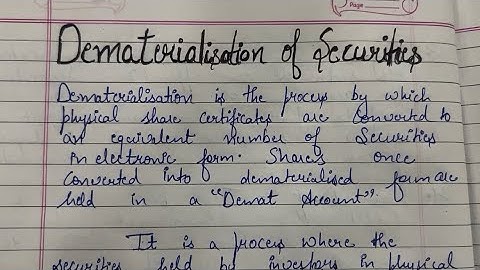 Page
Dematerialisation of Securities
Dematerialisation is the process by which
physical share certificates are converted to
an equivalent number of Securities
in electronic form. Shares once
converted into dematerialised form are
held in a "Demat Account".
It is a process where the
securities held by investors in physical